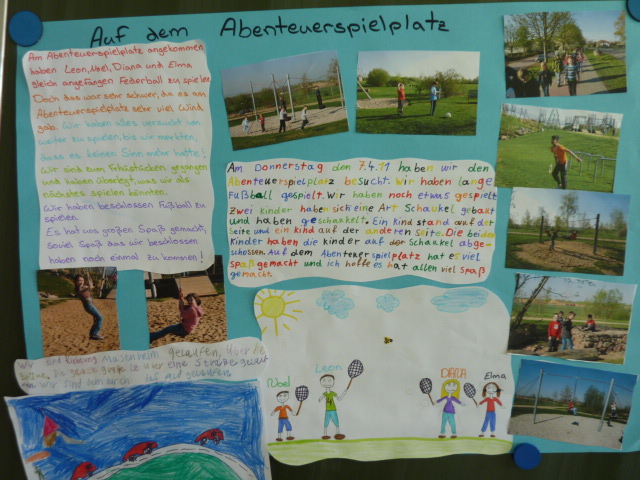 Auf dem Abenteuerspielplatz
Am Abenteuerspielplatz angekommen
haben Leon, Noel, Diana und Elma
gleich angefangen Federball zu spielen
Doch das war sehr schwer, da es am
Abenteuerspielplatz sehr viel Wind
gab. Wir haben alles versucht um
weiter zu spielen, bis wir merkten,
dass es keinen Sinn mehr hatte!
Wir sind zum Frühstücken gegangen
und haben überlegt, was wir als
nächstes spielen könnten.
Wir haben beschlossen Fußball zu
spielen.
Es hat uns großen Spaß gemacht,
soviel Spaß das wir beschlossen
haben noch einmal zu kommen!
Am Donnerstag den 7.4.11 haben wir den
Abenteuerspielplatz besucht. Wir haben lange
Fußball gespielt. Wir haben noch etwas gespielt
Zwei kinder haben sich eine Art Schaukel gebaut
und haben geschaukelt. Ein Kind stand auf der
Seite und ein kind auf der anderen Seite. Die beiden
Kinder haben die kinder auf der Schaukel abge-
schossen. Auf dem Abenteuerspielplatz hat es viel
Spaß gemacht und ich hoffe es hat allen viel Spaß
gemacht.
Wir sind Richtung Maisenheim gelaufen, über die
eine Straße
wir sind
Noel
Leon
DIANA
Elma